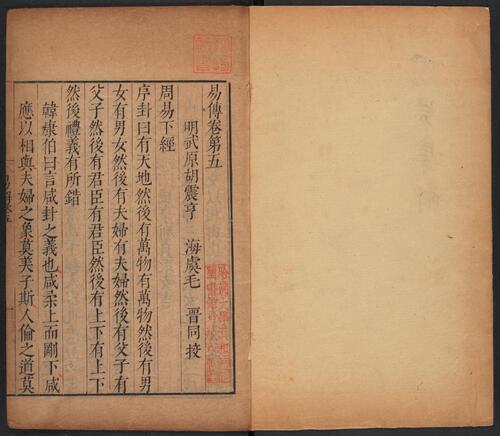 易傳卷第五
明武原胡震亨 海虞毛 晉同挍
周易下經
序卦曰有天地然後有萬物有萬物然後有男
女有男女然後有夫婦有夫婦然後有父子有
父子然後有君臣有君臣然後有上下有上下
然後禮義有所錯
韓康伯曰言咸卦之義也咸柔上而剛下感
應以相與夫婦之象莫美乎斯人倫之道莫